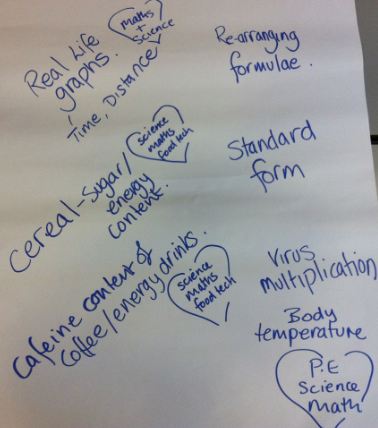 Real Life
graphs.
Time, Distance
maths
+
science
Re-arranging
formulae.
Cereal-sugar/
energy
content.
science
maths
food tech
Standard
form
Cafeine content of
Coffee/energy drinks.
science
maths
food tech
Virus
multiplication
Body
temperature
P.E
Science
Math